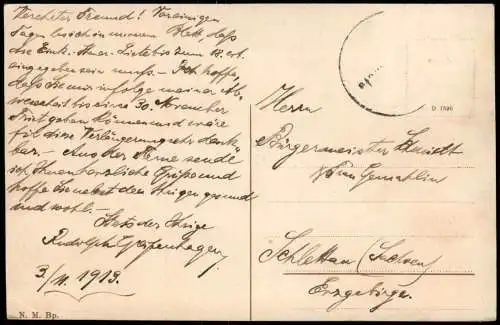 Verehrter Freund! Vor einigen
Tagen las ich in unserem Blatt, daß
die Eink. Steuer-Liste bis zum 18. crt.
eingegeben sein muß. - Ich hoffe,
daß Sie mir infolge meiner Ab-
wesenheit bis circa 30. November
Frist geben können und wäre
für diese Verlängerung sehr dank-
bar. - Aus der Ferne sende
ich Ihnen herzliche Grüße und
hoffe Sie nebst den Ihrigen gesund
und wohl.
Stets der Ihrige
Rudolph
3/11. 1913.
N. M. Bp.
D 7596
Herrn
Bürgermeister Schmidt
Frau Gemahlin
Schlettau (Sachsen)
Erzgebirge.